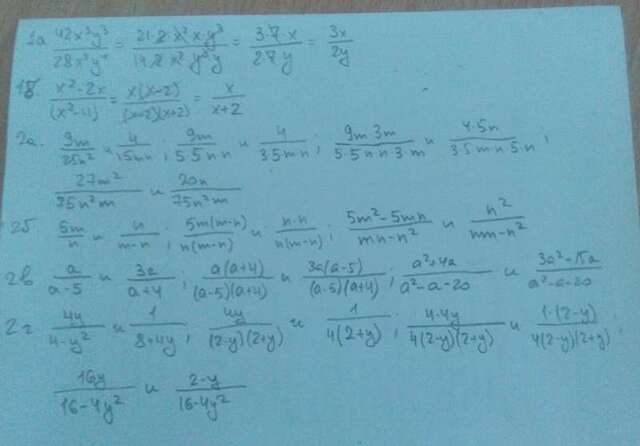 1а 42x³y³/28x²y⁴ = 21·2·x²·x·y³/14·2·x²·y³·y = 3·7·x/2·7·y = 3x/2y
1б x²-2x/(x²-4) = x(x-2)/(x-2)(x+2) = x/x+2
2а. 9m/25n² и 4/15mn ; 9m/5·5·n·n и 4/3·5·m·n ; 9m·3m/5·5·n·n·3·m и 4·5n/3·5·m·n·5·n ;
27m²/75n²m и 20n/75n²m
2б 5m/n и n/m-n ; 5m(m-n)/n(m-n) и n·n/n(m-n) ; 5m²-5mn/mn-n² и n²/mn-n²
2в a/a-5 и 3a/a+4 ; a(a+4)/(a-5)(a+4) и 3a(a-5)/(a-5)(a+4) ; a²+4a/a²-a-20 и 3a²-15a/a²-a-20
2г 4y/4-y² и 1/8+4y ; 4y/(2-y)(2+y) и 1/4(2+y) ; 4·4y/4(2-y)(2+y) и 1·(2-y)/4(2-y)(2+y) ;
16y/16-4y² и 2-y/16-4y²